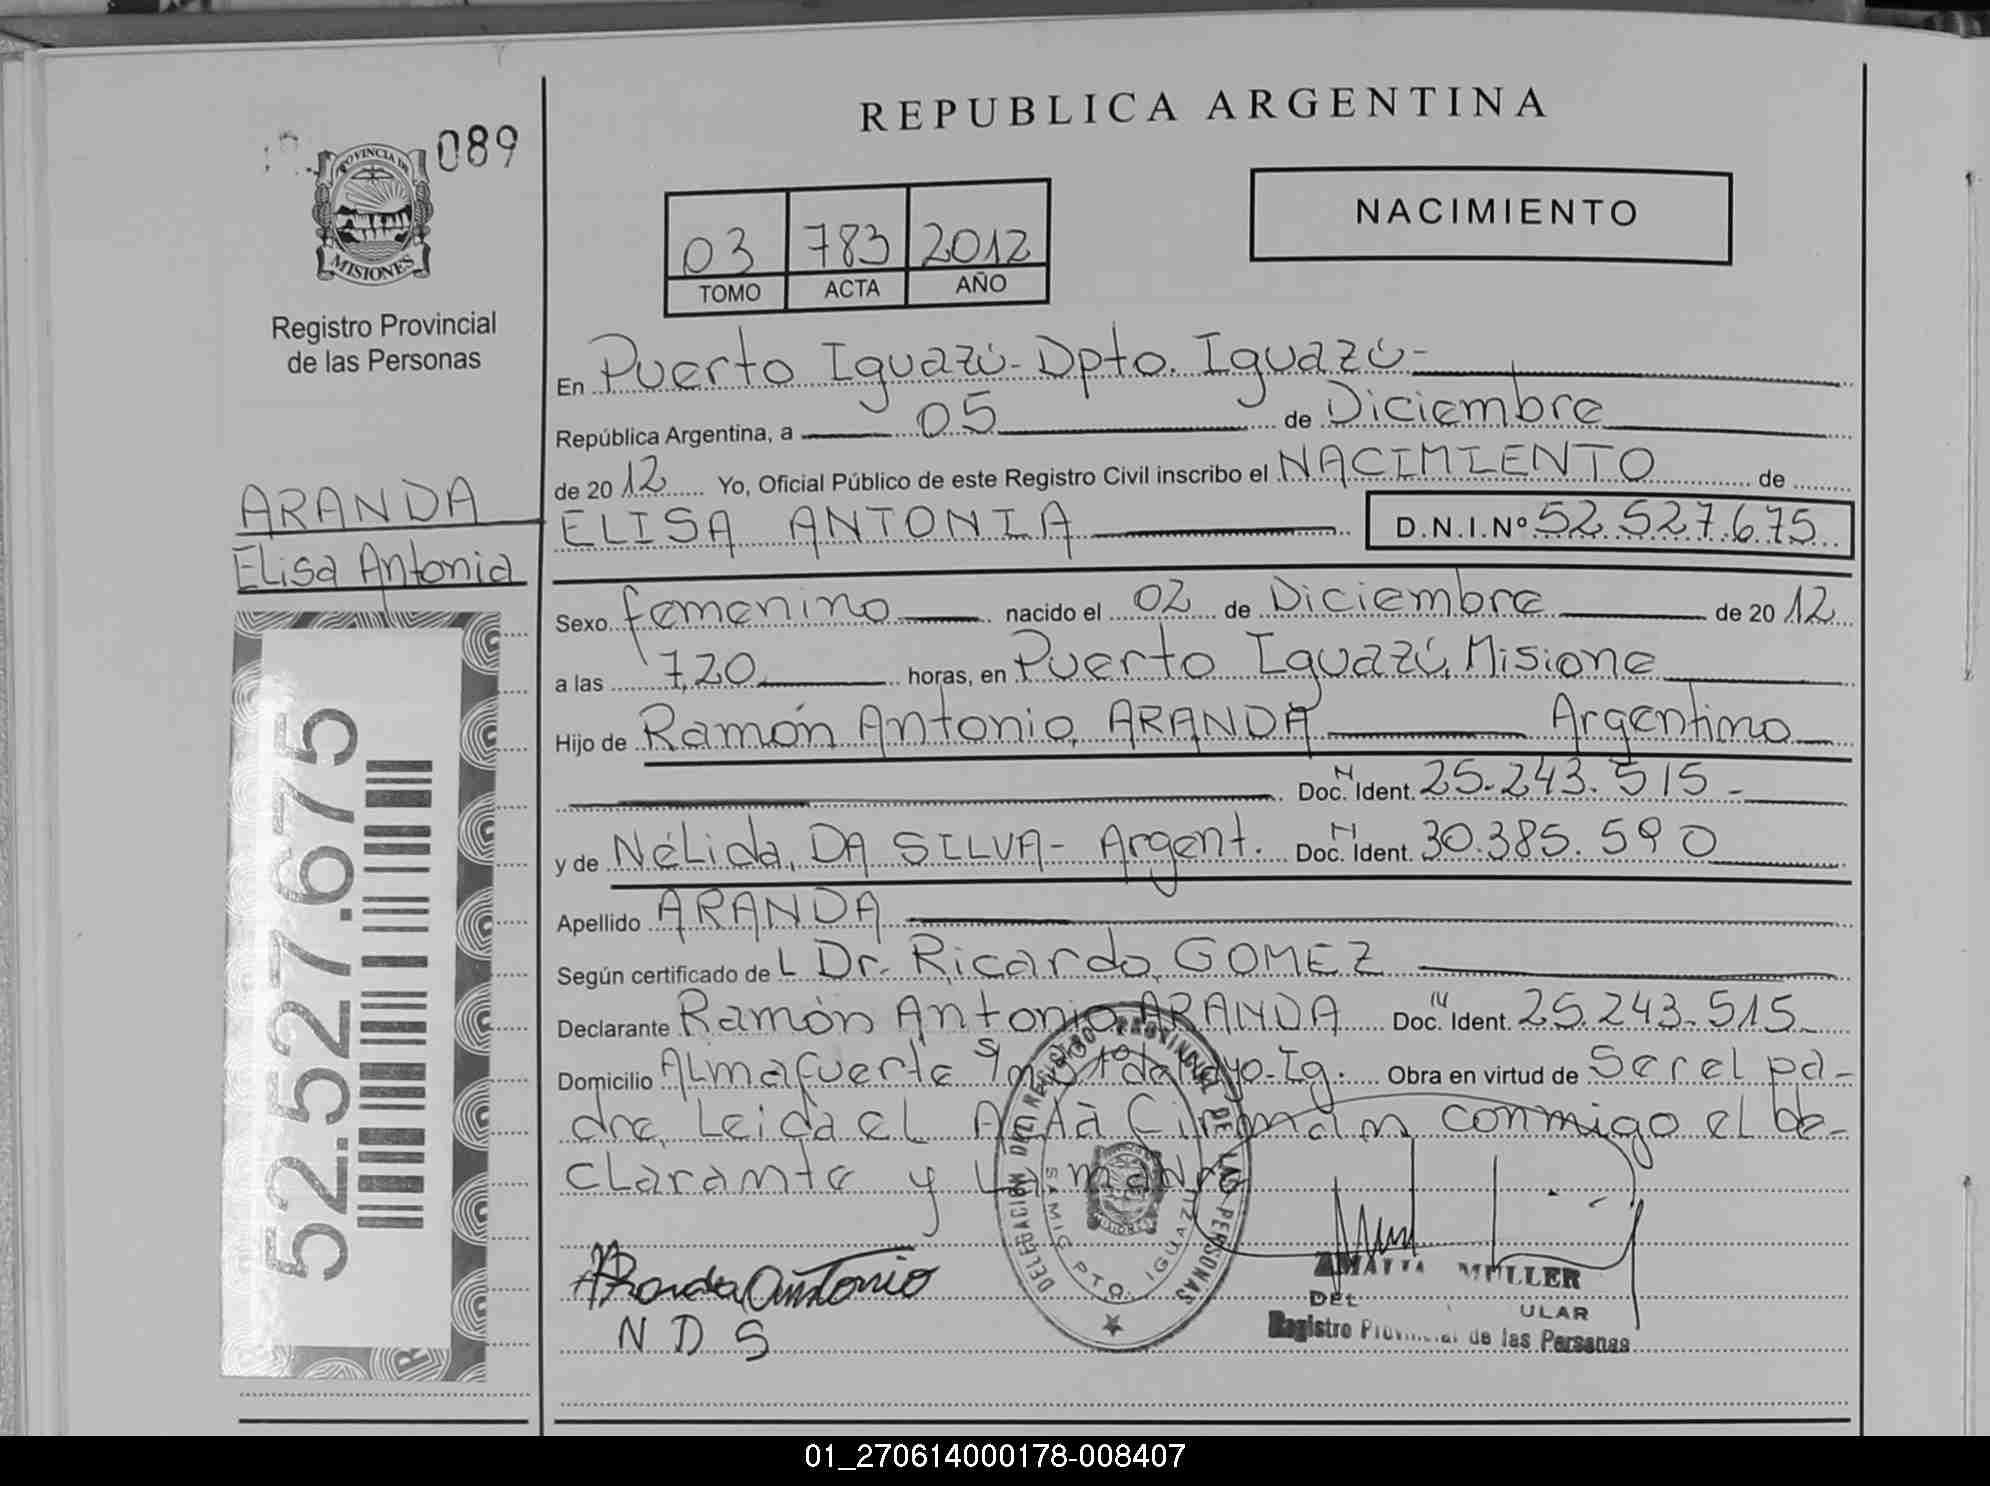 REPUBLICA ARGENTINA
089
PROVINCIA DE
MISIONES
Registro Provincial
de las Personas
03 783 2012
TOMO ACTA AÑO
NACIMIENTO
En Puerto Iguazú- Dpto. Iguazú-
República Argentina, a 05 de Diciembre
de 2012 Yo, Oficial Público de este Registro Civil inscribo el NACIMIENTO de
ELISA ANTONIA D.N.I.Nº 52.527.675
ARANDA
Elisa Antonia
52.527.675
Sexo femenino nacido el 02 de Diciembre de 2012
a las 7,20 horas, en Puerto Iguazú, Misione
Hijo de Ramón Antonio, ARANDA Argentino
Doc. N Ident. 25.243.515-
y de Nélida, DA SILVA- Argent. Doc. N Ident. 30.385.590
Apellido ARANDA
Según certificado de L Dr. Ricardo, GOMEZ
Declarante Ramón Antonio, ARANDA Doc. N Ident. 25.243.515
Domicilio Almafuerte s/n Ig. Obra en virtud de Ser el pa-
dre, Leida el Acta Firman conmigo el De-
clarante y La madre
DELEGACIÓN DEL REGISTRO PROVINCIAL DE LAS PERSONAS
SAMIC PTO. IGUAZU
Aranda Antonio
N D S
AMALIA MULLER
DEL ULAR
Registro Provincial de las Personas
01_270614000178-008407